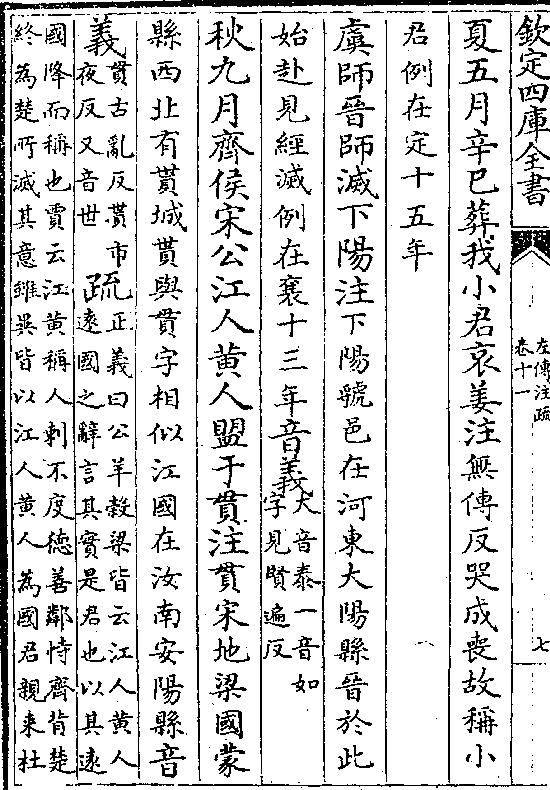 欽定四庫全書
左傳注疏
卷十一
七
夏五月辛巳葬我小君哀姜注無傳反哭成喪故稱小
君例在定十五年
虞師晉師滅下陽注下陽虢邑在河東大陽縣晉於此
始赴見經滅例在襄十三年音義大音泰一音如
字見賢遍反
秋九月齊侯宋公江人黃人盟于貫注貫宋地梁國蒙
縣西北有貰城貰與貫字相似江國在汝南安陽縣音
義貫古亂反貰市
夜反又音世疏正義曰公羊穀梁皆云江人黃人
遠國之辭言其實是君也以其遠
國降而稱也賈云江黃稱人刺不度德善鄰恃齊背楚
終為楚所滅其意雖異皆以江人黃人為國君親來杜